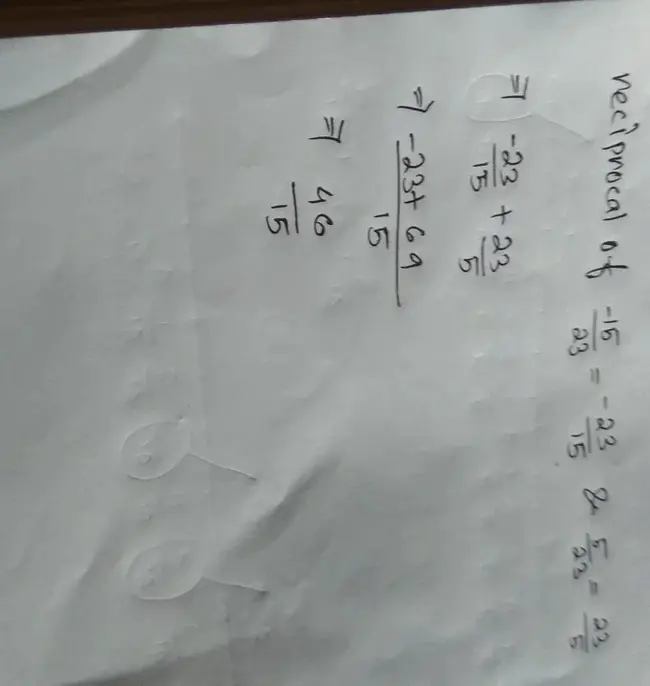 reciprocal of -15/23 = -23/15 & 5/23 = 23/5
⇒ -23/15 + 23/5
⇒ -23+69/15
⇒ 46/15